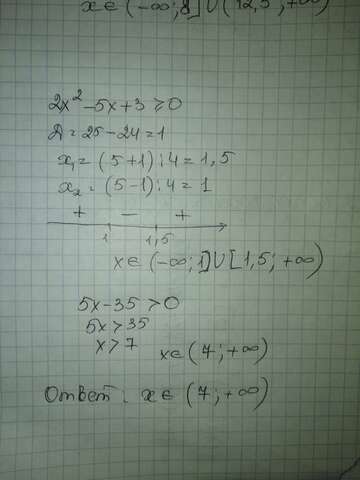 x∈(-∞;8]∪(12,5;+∞)
2x²-5x+3≥0
D=25-24=1
x₁=(5+1):4=1,5
x₂=(5-1):4=1
+ - +
1 1,5
x∈(-∞;1]∪[1,5;+∞)
5x-35>0
5x>35
x>7 x∈(7;+∞)
Ответ: x∈(7;+∞)